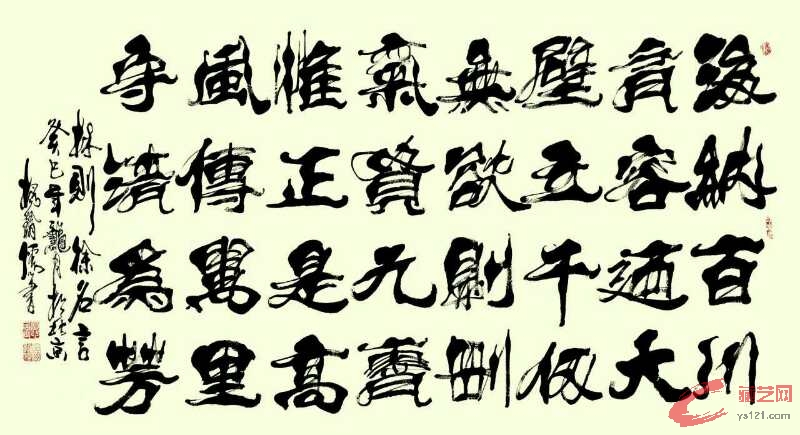 海納百川
有容迺大
壁立千仞
無欲則剛
氣九
惟正是高
風傳萬里
守清為芳
林則徐名言
癸巳年龍月於北京
書
藏艺网
ys121.com